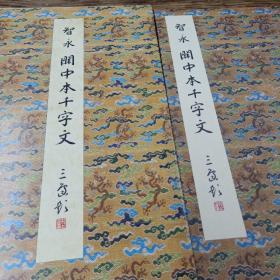 智永關中本千字文
智永關中本千字文